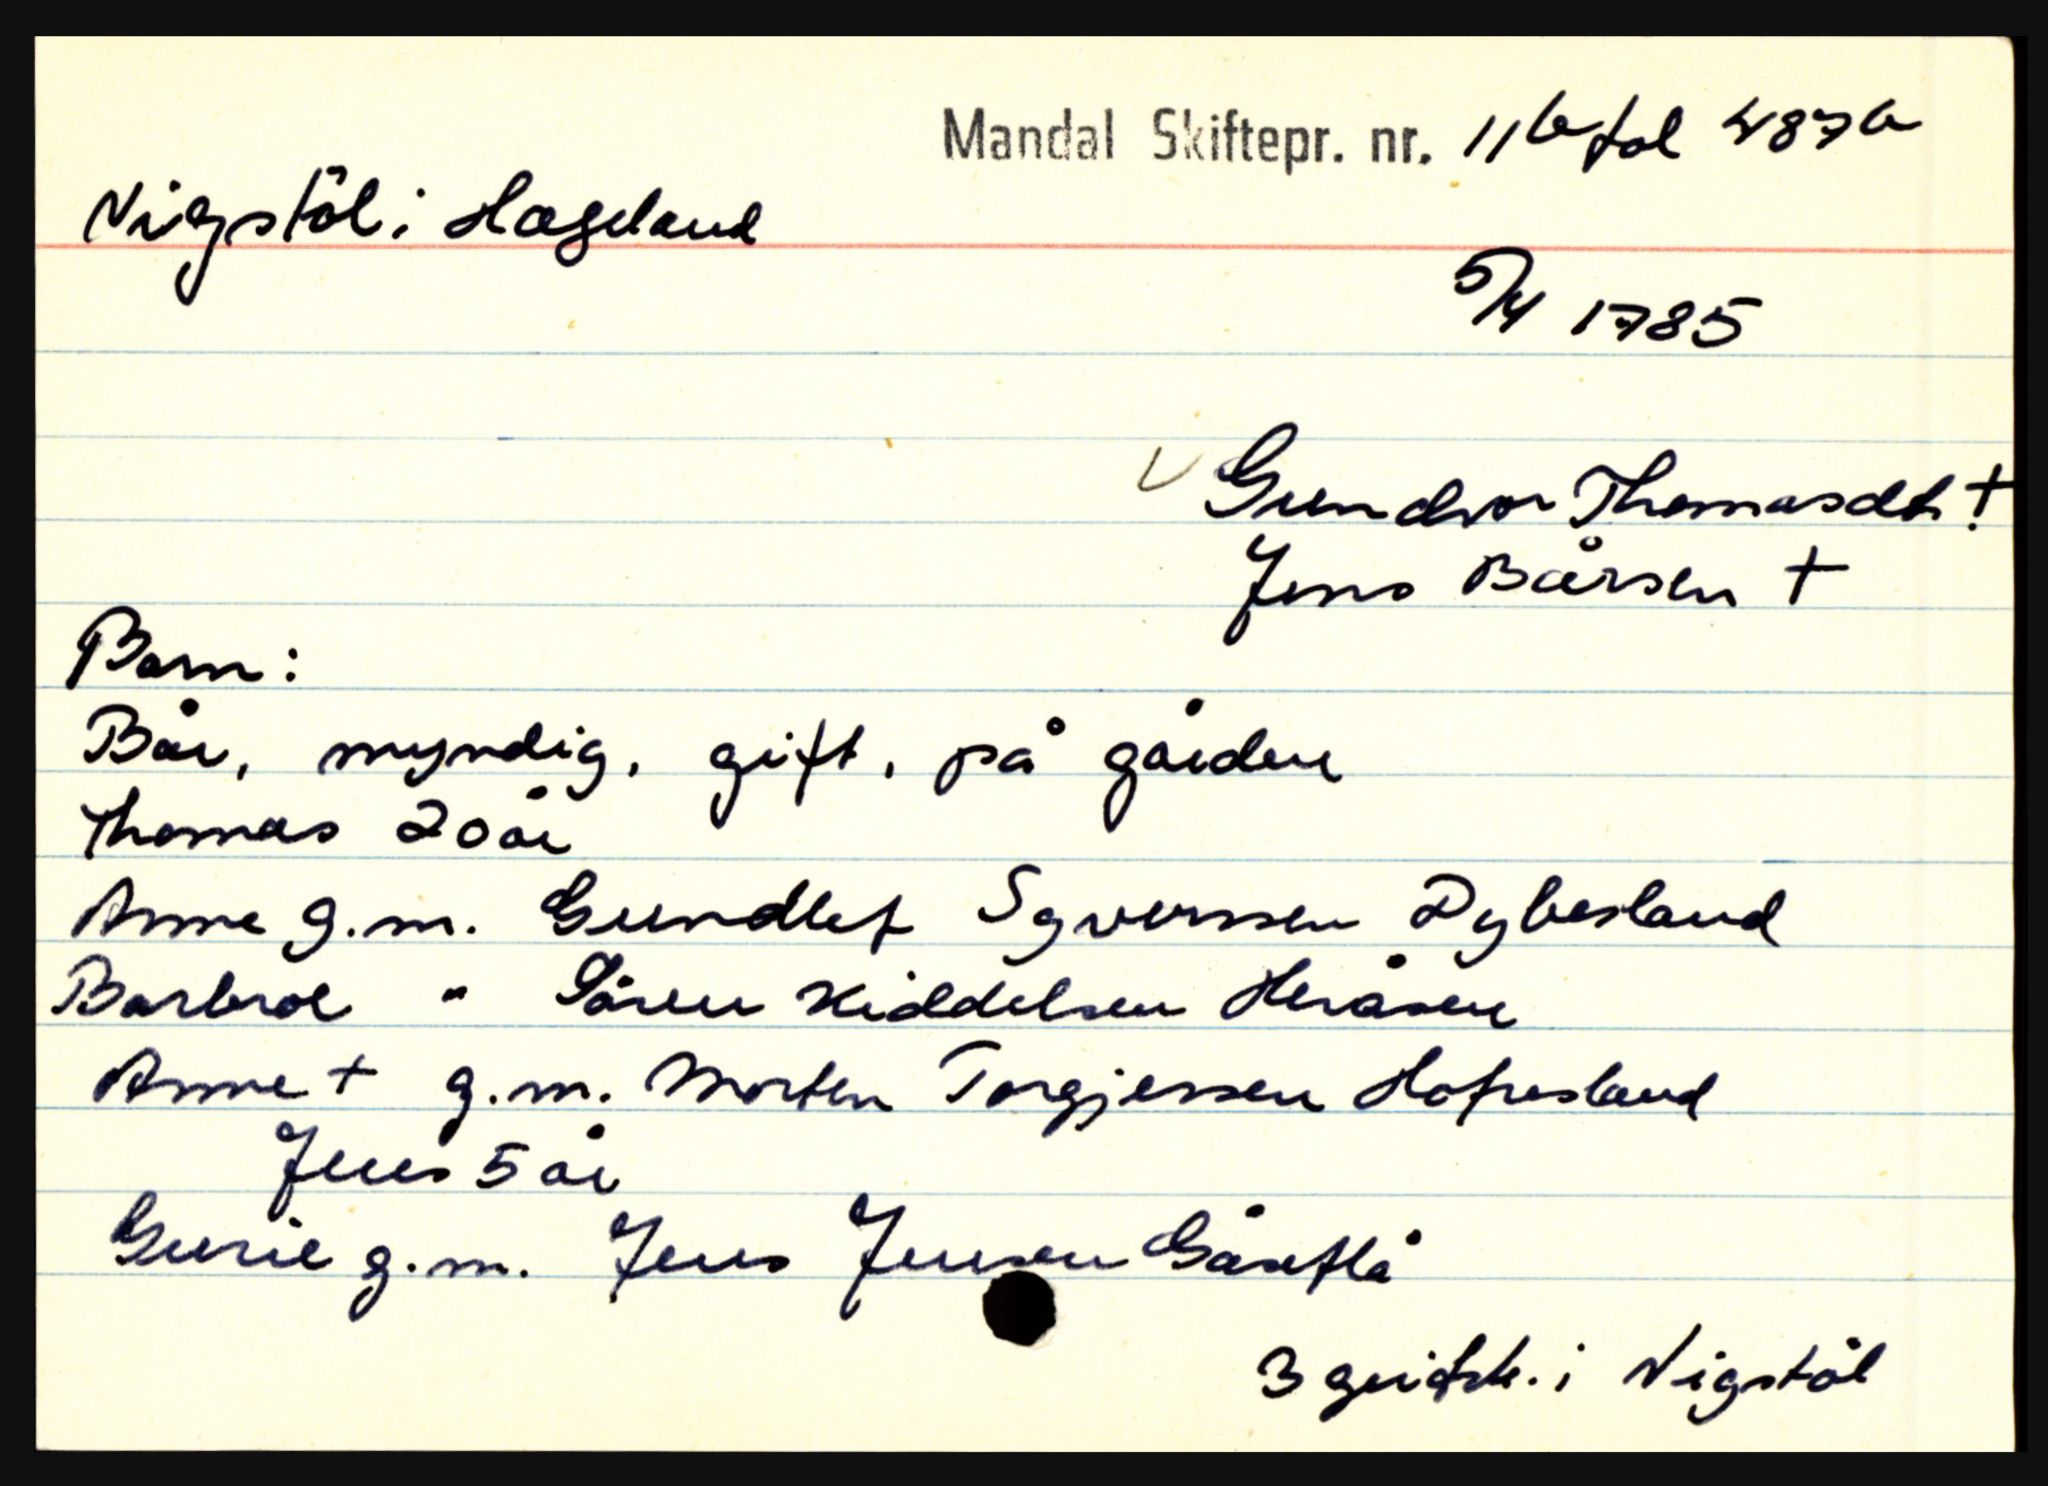 Mandal Skiftepr. nr. 11b fol 487b
Nigstöl i Hægeland
5/4 1785
Gundvor Thomasdt. †
Jens Bårsen †
Barn:
Bår, myndig, gift, på gården
Thomas 20 år
Anne g.m. Gundlef Syverssen Dybesland
Barbroe " Sören Kiddelsen Heråsen
Anne † g.m. Morten Torgjerssen Hofresland
Jens 5 år
Gurie g.m. Jens Jensen Gåseflå
3 i Nigstöl